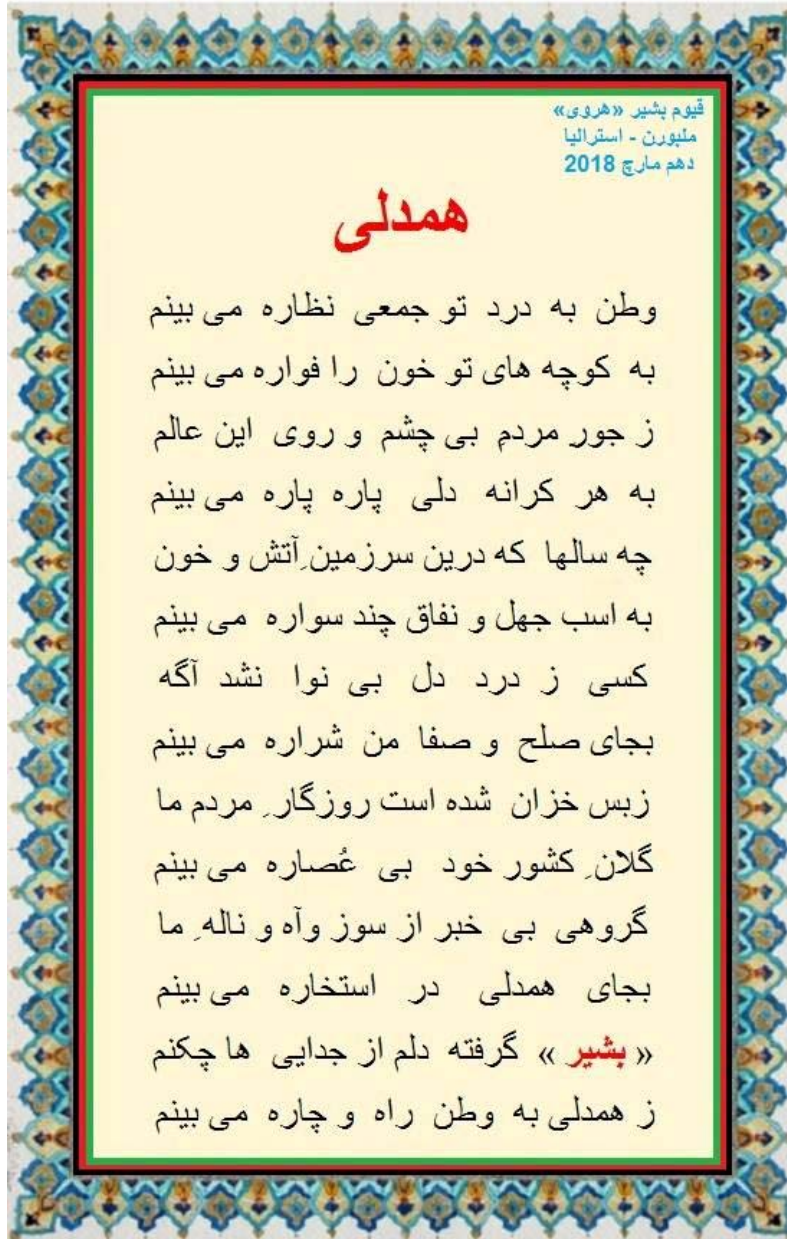 قیوم بشیر «هروی»
ملبورن - استرالیا
دهم مارچ 2018
همدلی
وطن به درد تو جمعی نظاره می بینم
به کوچه های تو خون را فواره می بینم
ز جورِ مردمِ بی چشم و روی این عالم
به هر کرانه دلی پاره پاره می بینم
چه سالها که درین سرزمینِ آتش و خون
به اسب جهل و نفاق چند سواره می بینم
کسی ز درد دل بی نوا نشد آگه
بجای صلح و صفا من شراره می بینم
زبس خزان شده است روزگارِ مردم ما
گلانِ کشور خود بی عُصاره می بینم
گروهی بی خبر از سوز وآه و نالهِ ما
بجای همدلی در استخاره می بینم
« بشیر » گرفته دلم از جدایی ها چکنم
ز همدلی به وطن راه و چاره می بینم